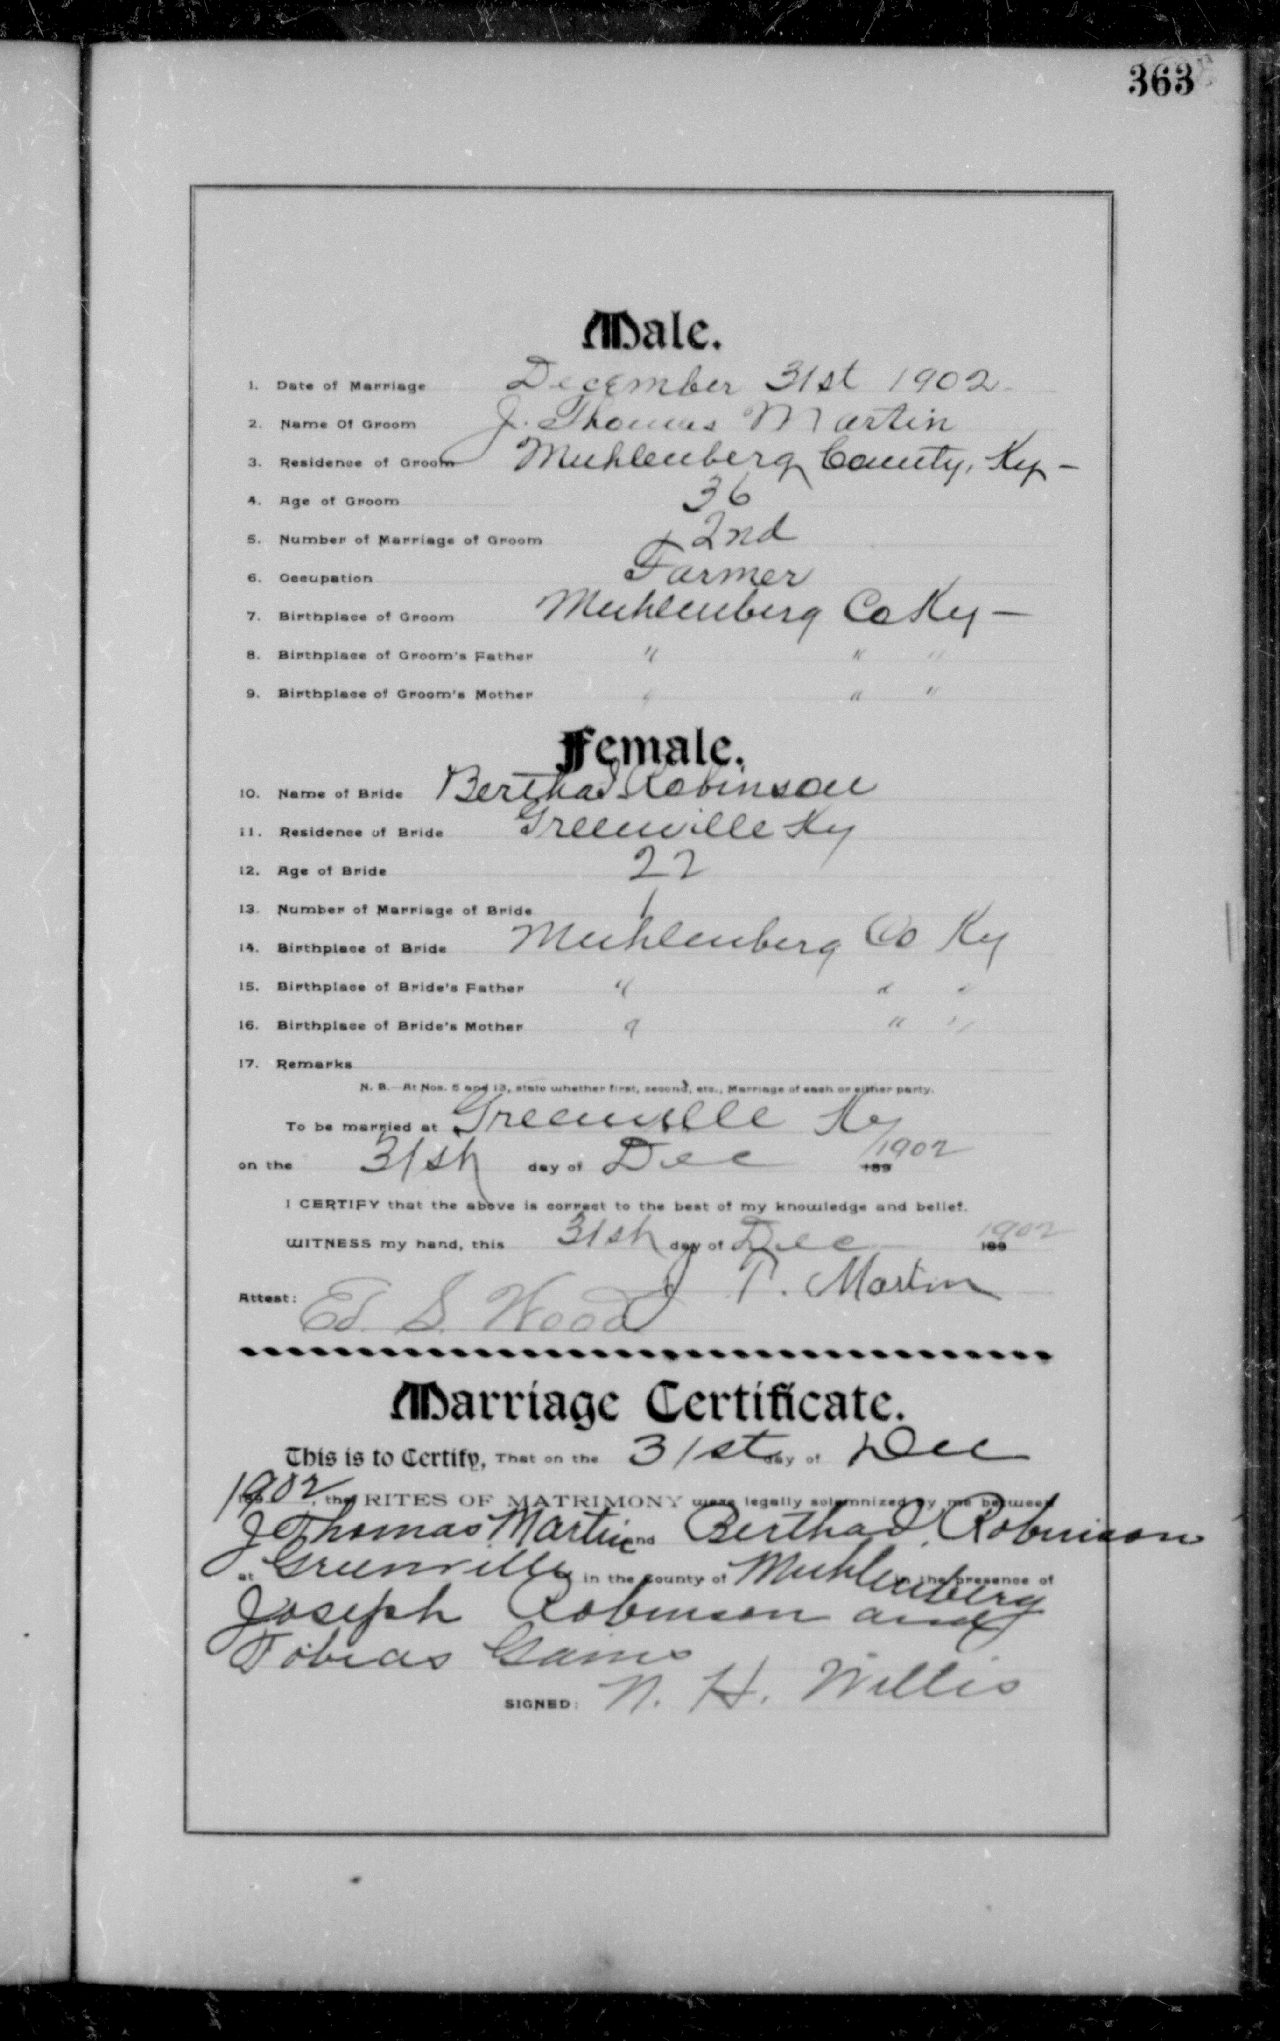 363
Male.
1. Date of Marriage December 31st 1902
2. Name Of Groom J. Thomas Martin
3. Residence of Groom Muhlenberg County, Ky -
4. Age of Groom 36
5. Number of Marriage of Groom 2nd
6. Occupation Farmer
7. Birthplace of Groom Muhlenberg Co Ky -
8. Birthplace of Groom's Father " " "
9. Birthplace of Groom's Mother " " "
Female.
10. Name of Bride Bertha Robinson
11. Residence of Bride Greenville Ky
12. Age of Bride 22
13. Number of Marriage of Bride 1
14. Birthplace of Bride Muhlenberg Co Ky
15. Birthplace of Bride's Father " " "
16. Birthplace of Bride's Mother " " "
17. Remarks
N. B.—At Nos. 5 and 13, state whether first, second, etc., Marriage of each or either party.
To be married at Greenville Ky
on the 31st day of Dec 189 1902
I CERTIFY that the above is correct to the best of my knowledge and belief.
WITNESS my hand, this 31st day of Dec 189 1902
J T. Martin
Attest: Ed. S. Wood
Marriage Certificate.
This is to Certify, That on the 31st day of Dec
1902, the RITES OF MATRIMONY were legally solemnized by me between
J Thomas Martin and Bertha Robinson
at Greenville in the County of Muhlenberg in the presence of
Joseph Robinson and
Tobias Gains
SIGNED: N. H. Willis